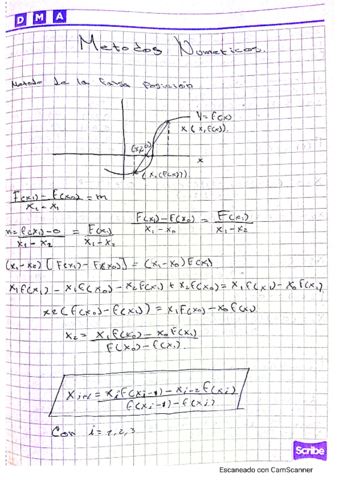 D M A
Metodos Numericos.
Metodo de la falsa posición
y = f(x)
x
f(x₁) - f(x₀) = m
x₁ - x₂
f(x₁) - f(x₀) = f(x₁)
x₁ - x₀   x₁ - x₂
f(x₁) - 0 = f(x₁)
x₁ - x₂   x₁ - x₂
(x₁ - x₂) [f(x₁) - f(x₀)] = (x₁ - x₀) f(x₁)
x₁f(x₁) - x₁f(x₀) - x₂f(x₁) + x₂f(x₀) = x₁f(x₁) - x₀f(x₁)
x₂(f(x₀) - f(x₁)) = x₁f(x₀) - x₀f(x₁)
x₂ = x₁f(x₀) - x₀f(x₁)
f(x₀) - f(x₁)
xᵢ₊₁ = xᵢf(xᵢ-₁) - xᵢ-₁f(xᵢ)
f(xᵢ-₁) - f(xᵢ)
Con i = 1, 2, 3
Scribe
Escaneado con CamScanner